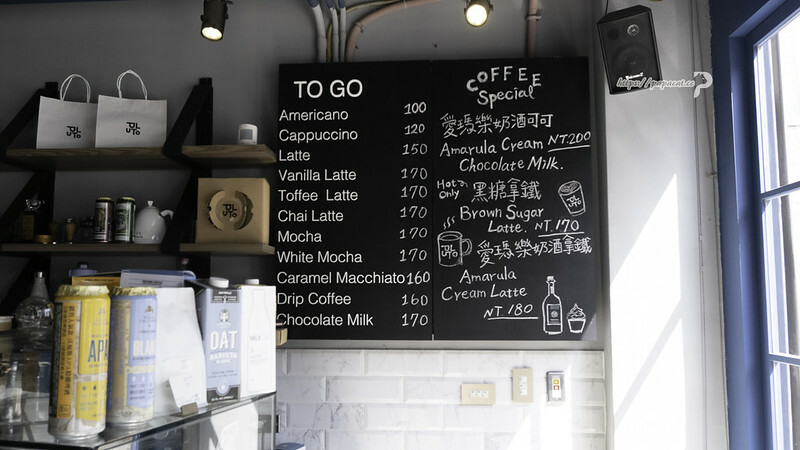 TO GO
Americano 100
Cappuccino 120
Latte 150
Vanilla Latte 170
Toffee Latte 170
Chai Latte 170
Mocha 170
White Mocha 170
Caramel Macchiato 160
Drip Coffee 160
Chocolate Milk 170
COFFEE
Special
愛瑪樂奶酒可可
Amarula Cream NT.200
Chocolate Milk.
Hot Only 黑糖拿鐵
Brown Sugar
Latte. NT.170
愛瑪樂奶酒拿鐵
Amarula
Cream Latte
NT 180
https://papacat.cc
APA
OAT
BARISTA